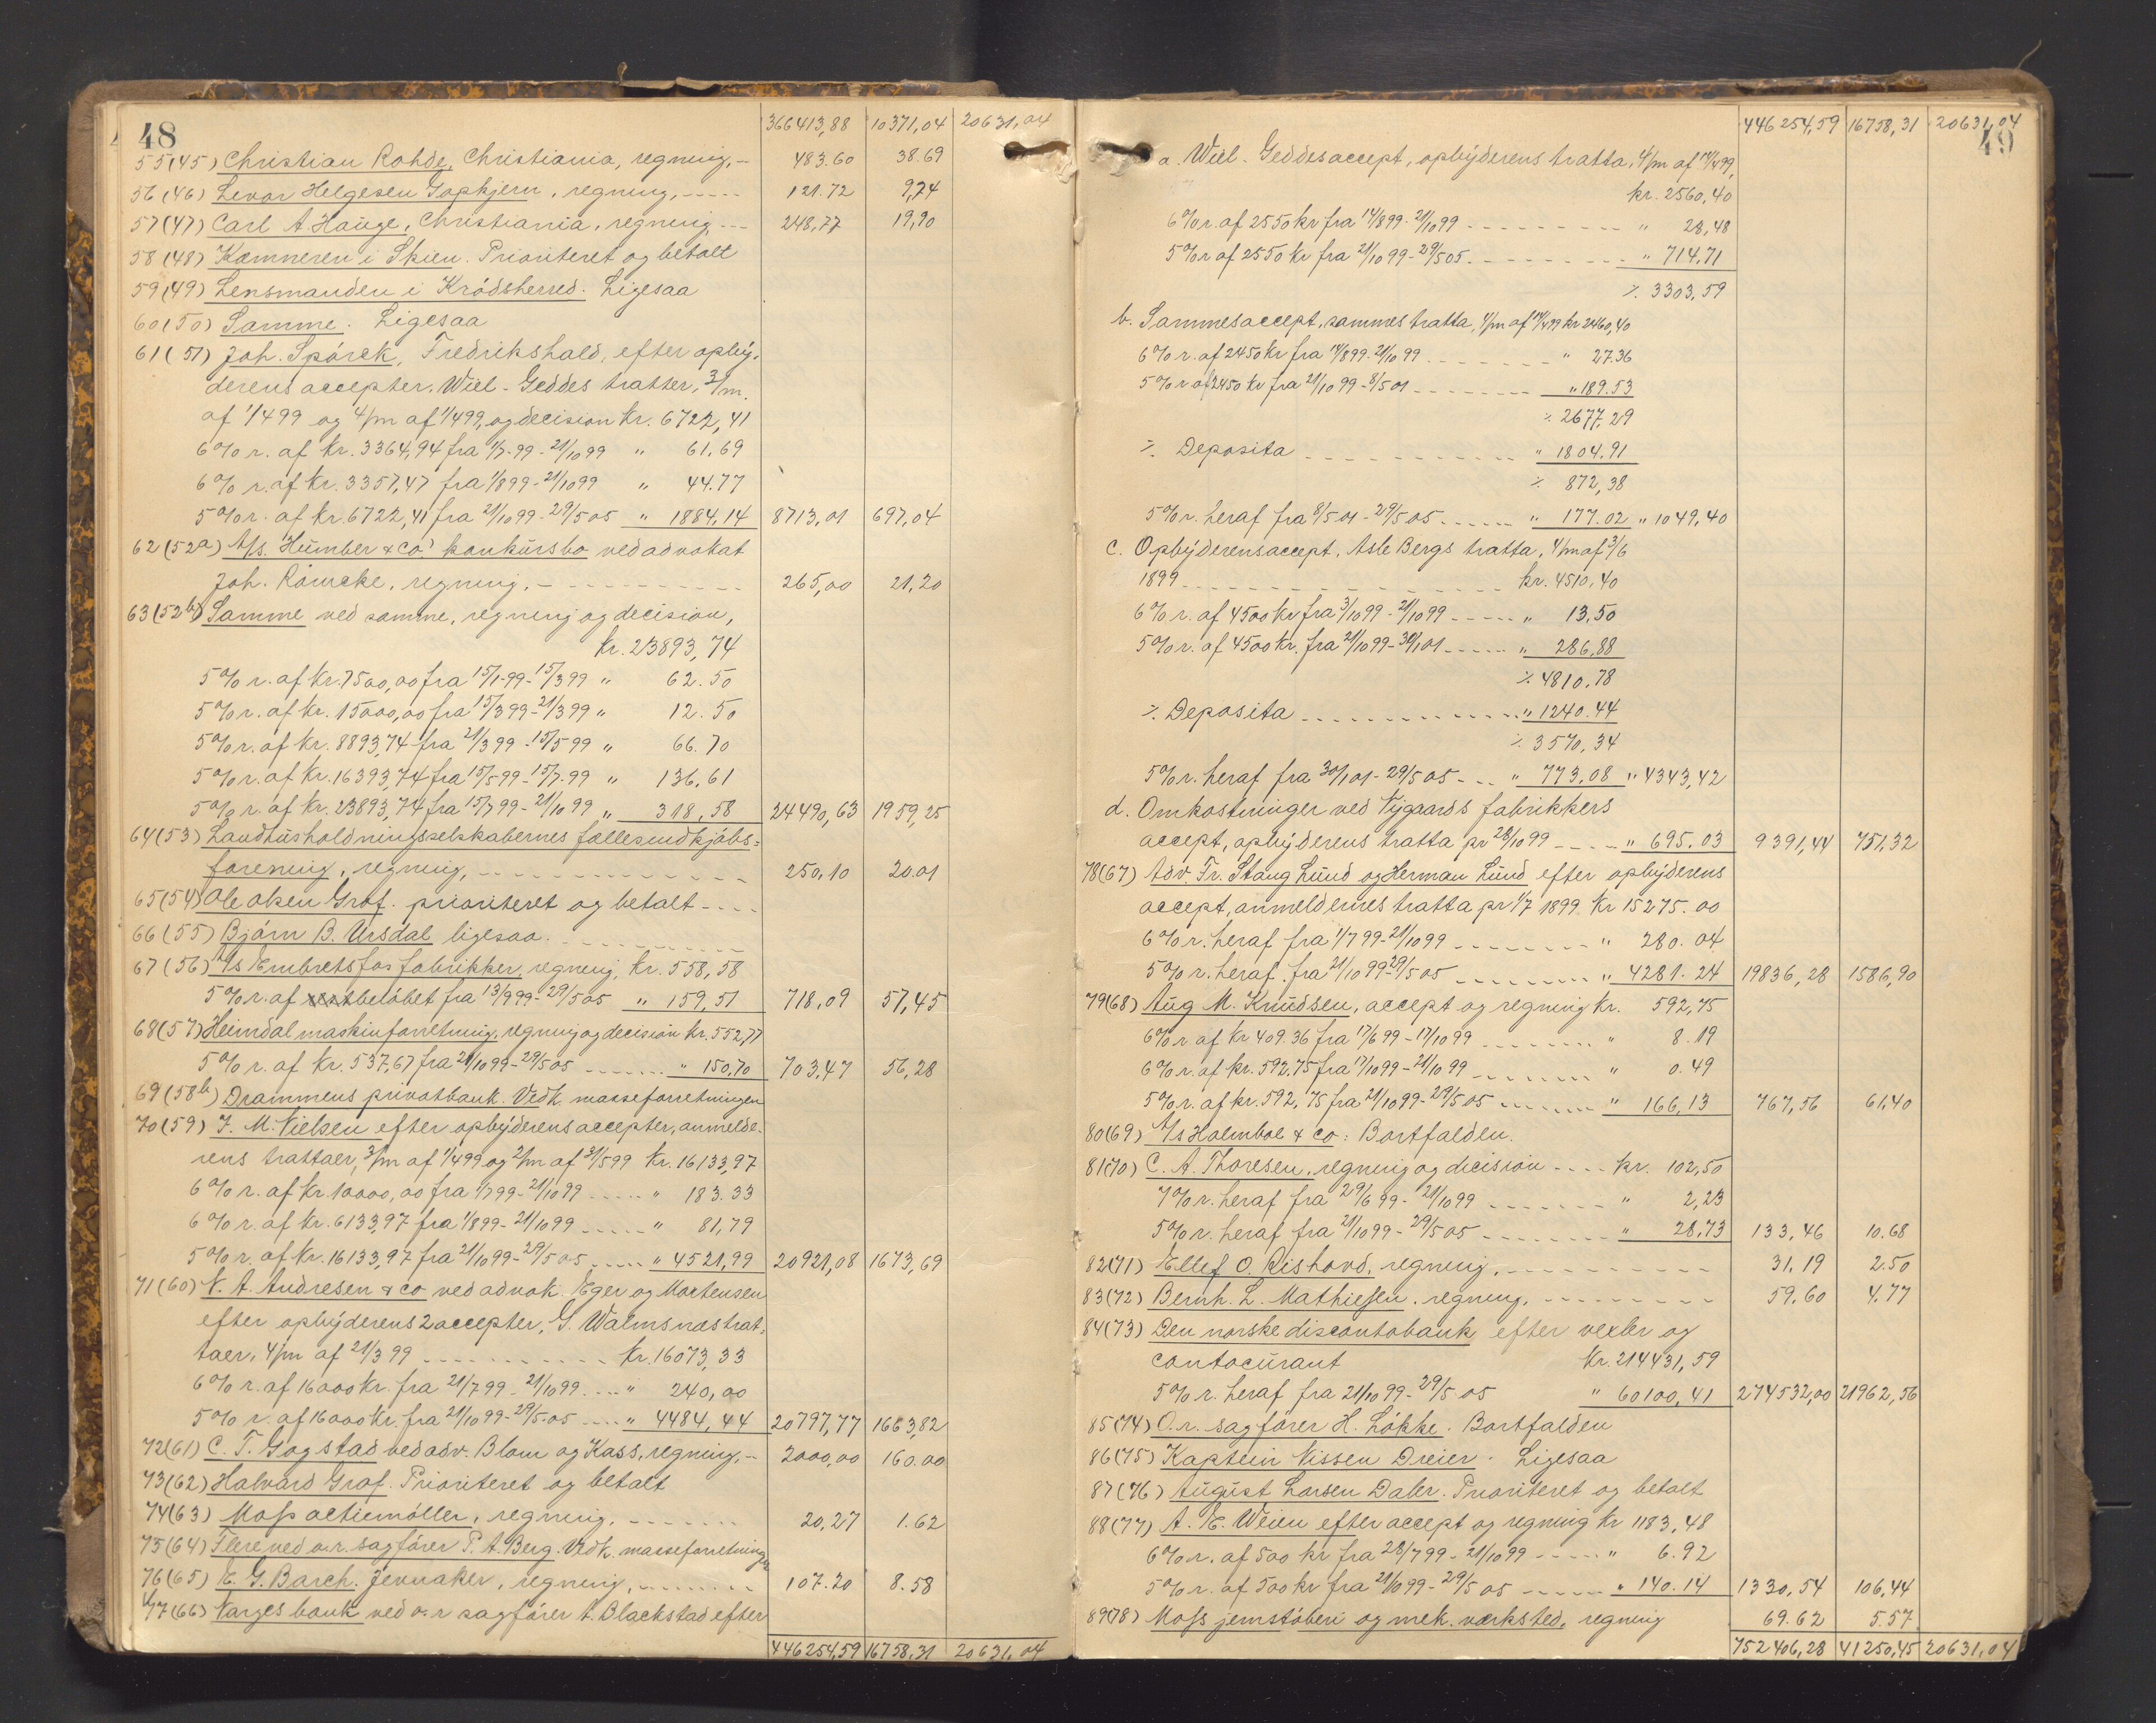 48
366413,88 10371,04 20631,04
55(45) Christian Rohde, Christiania, regning, 483.60 38.69
56(46) Levor Helgesen Gopkjern, regning, 121.72 9,74
57(47) Carl A. Hauge, Christiania, regning 248,77 19,90
58(48) Kæmneren i Skien. Prioriteret og betalt
59(49) Lensmanden i Krødsherred. Ligesaa
60(50) Samme. Ligesaa
61(51) Joh. Spørck, Fredrikshald, efter opby-
derens accepter, Wiel-Geddes tratter, 3/m.
af 1/4 99 og 4/m af 1/4 99, og decision Kr. 6722,41
6% r. af Kr. 3364,94 fra 1/7-99-21/10 99 " 61,69
6% r. af Kr. 3357,47 fra 1/8 99-21/10 99 " 44.77
5% r. af Kr. 6722,41 fra 21/10 99-29/5 05 " 1884,14 8713,01 697,04
62(52a) A/s. Humber & Co' konkursbo ved advokat
Joh. Rømcke, regning, 265,00 21,20
63(52b) Samme ved samme, regning og decision,
Kr. 23893,74
5% r. af Kr. 7500,00 fra 15/1-99-15/3 99 " 62.50
5% r. af Kr. 15000,00 fra 15/3 99-21/3 99 " 12.50
5% r. af Kr. 8893,74 fra 21/3 99-15/5 99 " 66.70
5% r. af Kr. 16393,74 fra 15/5 99-15/7-99 " 136,61
5% r. af Kr. 23893,74 fra 15/7 99-21/10 99 " 318,58 24490,63 1959,25
64(53) Landhusholdningsselskabernes fællesindkjøbs=
forening, regning, 250,10 20.01
65(54) Ole Olsen Grof. prioriteret og betalt
66(55) Bjørn B. Ursdal ligesaa.
67(56) A/s Embretsfos fabrikker, regning, Kr. 558,58
5% r. af restbeløbet fra 13/9 99-29/5 05 " 159,51 718,09 57,45
68(57) Heimdal maskinforretning, regning og decision Kr. 552,77
5% r. af Kr. 537,67 fra 21/10 99-29/5 05 " 150,70 703,47 56,28
69(58b) Drammens privatbank. Vedk. masseforretningen
70(59) F. M. Nielsen efter opbyderens accepter, anmelde-
rens trattaer, 3/m af 1/4 99 og 2/m af 31/5 99 Kr. 16133,97
6% r. af Kr. 10000,00 fra 1/7 99-21/10 99 " 183.33
6% r. af Kr. 6133,97 fra 1/8 99-21/10 99 " 81,79
5% r. af Kr. 16133,97 fra 21/10 99-29/5 05 " 4521,99 20921,08 1673,69
71(60) N. A. Andresen & Co ved advok. Eger og Mortensen
efter opbyderens 2 accepter, G. Walmsnæs trat-
taer, 4/m af 21/3 99 Kr. 16073,33
6% r. af 16000 Kr. fra 21/7 99-21/10 99 " 240,00
5% r. af 16000 Kr. fra 21/10 99-29/5-05 " 4484,44 20797,77 1663,82
72(61) C. T. Gogstad ved adv. Blom og Kass, regning, 2000,00 160.00
73(62) Halvard Grof. Prioriteret og betalt
74(63) Moss actiemøller, regning, 20,27 1.62
75(64) Flere ved o.r. sagfører P. A. Berg. Vedk. masseforretningen
76(65) E. G. Barch. Jevnaker, regning, 107.20 8.58
77(66) Norges bank ved o.r sagfører A. Blackstad efter
446254,59 16758,31 20631,04
49
446254,59 16758,31 20631,04
a. Wiel-Geddes accept, opbyderens tratta, 4/m af 14/4 99,
kr. 2560,40
6% r. af 2550 kr fra 14/8 99-21/10 99 " 28,48
5% r af 2550 kr fra 21/10 99-29/5 05. " 714,71
% 3303,59
b. Sammes accept, sammes tratta, 4/m af 14/4 99 kr 2460,40
6% r. af 2450 kr fra 14/8 99-21/10 99 " 27.36
5% r af 2450 kr fra 21/10 99-8/5 01 " 189.53
% 2677,29
% Deposita " 1804.91
% 872,38
5% r. heraf fra 8/5 01-29/5 05 " 177.02 " 1049,40
c. Opbyderens accept, Asle Bergs tratta, 4/m af 3/6
1899 kr. 4510,40
6% r. af 4500 kr fra 3/10 99-21/10 99 " 13,50
5% r. af 4500 kr. fra 21/10 99-30/1 01 " 286,88
% 4810.78
% Deposita " 1240.44
% 3570,34
5% r. heraf fra 30/1 01-29/5 05 " 773,08 " 4343,42
d. Omkostninger ved Nygaards fabrikkers
accept, opbyderens tratta pr 28/10 99 " 695.03 9391,44 751,32
78(67) Adv. Fr. Stang Lund og Herman Lund efter opbyderens
accept, anmeldernes tratta pr 1/7 1899 Kr 15275.00
6% r. heraf fra 1/7 99-21/10 99 " 280.04
5% r. heraf fra 21/10 99-29/5 05 " 4281.24 19836,28 1586,90
79(68) Aug M. Knudsen, accept og regning kr. 592,75
6% r af kr 409.36 fra 17/6 99-17/10 99 " 8.19
6% r. af kr. 592.75 fra 17/10 99-21/10 99 " 0.49
5% r. af kr. 592,75 fra 21/10 99-29/5 05 " 166,13 767,56 61,40
80(69) A/s Holmboe & Co: Bortfalden.
81(70) C. A. Thoresen, regning og decision kr. 102,50
7% r. heraf fra 29/6 99-21/10 99 " 2,23
5% r. heraf fra 21/10 99-29/5 05 " 28,73 133,46 10.68
82(71) Ellef O. Rishovd, regning, 31.19 2.50
83(72) Bernh. L. Mathiesen, regning, 59,60 4.77
84(73) Den norske discontobank efter vexler og
contocurant Kr. 214431,59
5% r. heraf fra 21/10 99-29/5 05 " 60100,41 274532,00 21962,56
85(74) O.r. sagfører H. Løkke. Bortfalden
86(75) Kaptein Nissen Dreier. Ligesaa
87(76) August Larsen Daler. Prioriteret og betalt
88(77) A. E. Weien efter accept og regning Kr 1183,48
6% r. af 500 kr fra 28/7 99-21/10 99 " 6.92
5% r. af 500 kr fra 21/10 99-29/5 05 " 140.14 1330,54 106,44
89(78) Moss jernstøberi og mek. værksted, regning 69.62 5.57
752406,28 41250,45 20631,04